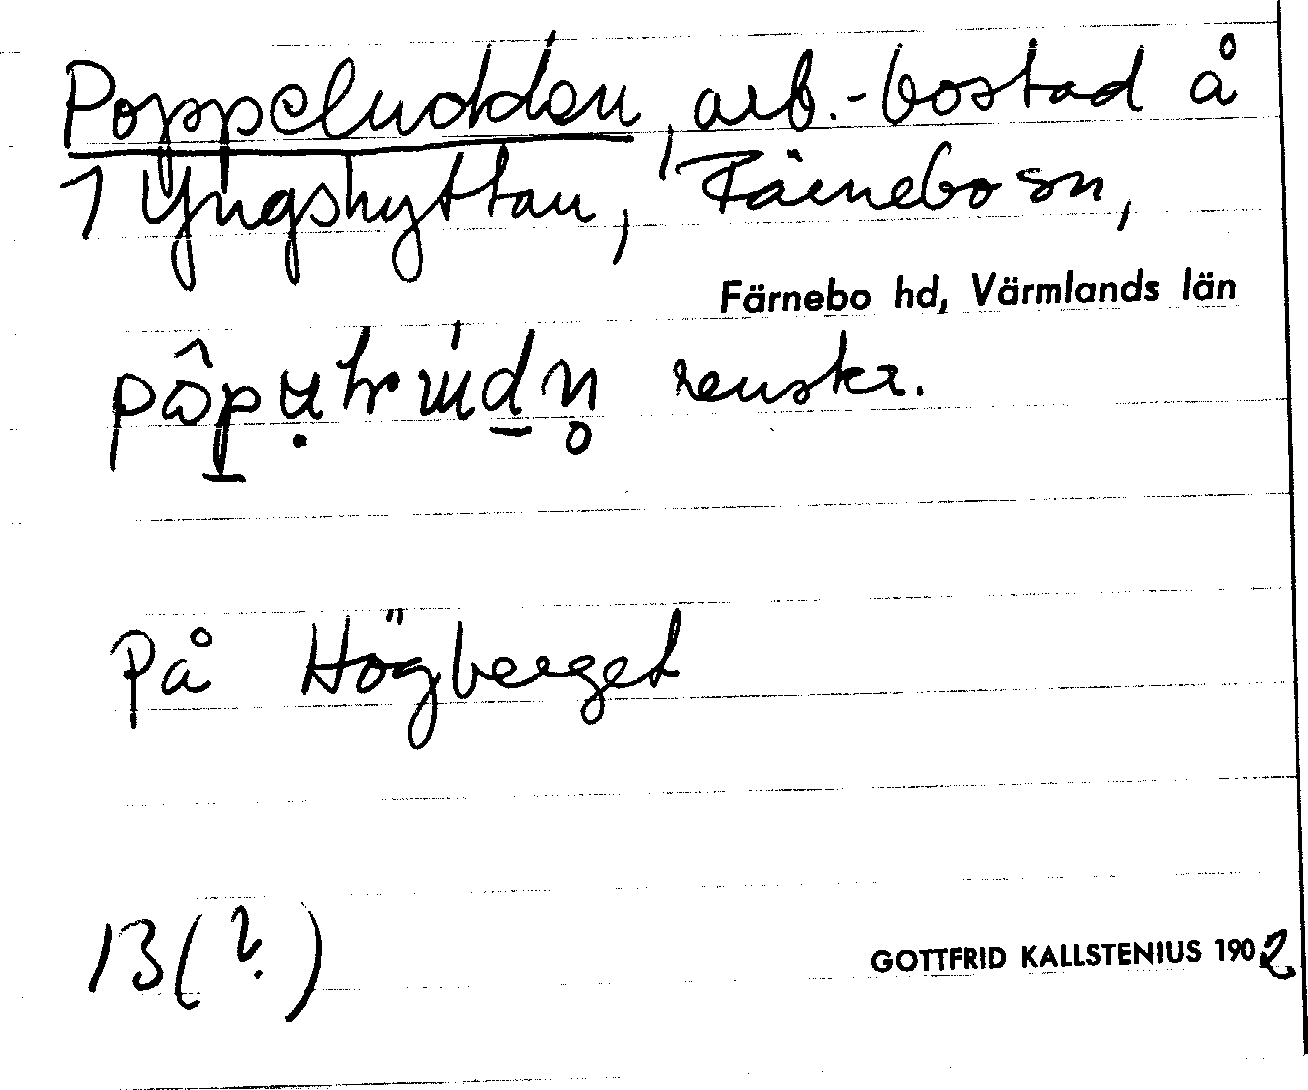 Poppeludden, arb.-bostad å
1 Yngshyttan, Färnebo sn,
Färnebo hd, Värmlands län
renskr.
På Högberget
13(?)
GOTTFRID KALLSTENIUS 1902